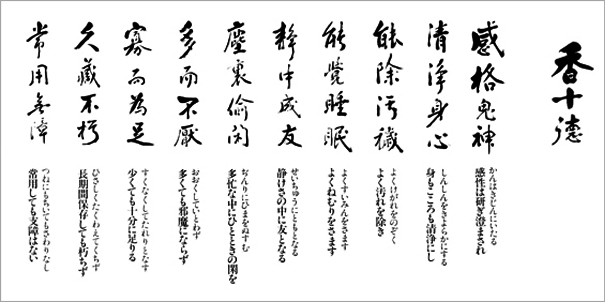 香十德
感格鬼神
かんはきじんにいたる
感性は研ぎ澄まされ
清浄身心
しんしんをきよらかにする
身もこころも清浄にし
能除汚穢
よくけがれをのぞく
よく汚れを除き
能覺睡眠
よくすいみんをさます
よくねむりをさます
静中成友
せいちゅうにともとなる
静けさの中に友となる
塵裏偷閑
ぢんりにひまをぬすむ
多忙な中にひとときの閑を
多而不厭
おおくしていとわず
多くても邪魔にならず
寡而為足
すくなくしてたれりとなす
少くても十分に足りる
久藏不朽
ひさしくたくわえてくちず
長期間保存しても朽ちず
常用無障
つねにもちいてもさわりなし
常用しても支障はない